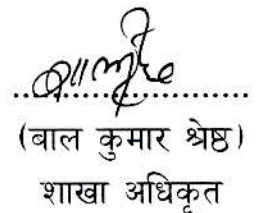 (बाल कुमार श्रेष्ठ)
शाखा अधिकृत